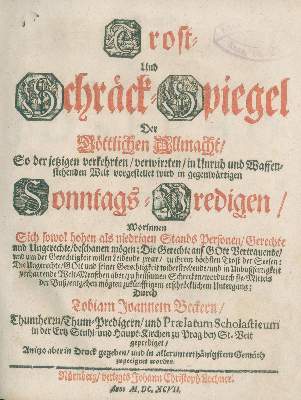 Trost-
Und
Schräck-Spiegel
Der
Göttlichen Allmacht/
So der jetzigen verkehrten/ verwirrten/ in Unruh und Waffen-
stehenden Welt vorgestellet wird in gegenwärtigen
Sonntags-Predigen/
Worinnen
Sich sowol hohen als niedrigen Stands Personen/ Gerechte
und Ungerechte/ beschauen mögen; Die Gerechte auf GOtt Vertrauende/
und um der Gerechtigkeit willen Leidende zwar/ zu ihrem höchsten Trost der Seelen:
Die Ungerechte/ GOtt und seiner Gerechtigkeit widerstrebende/ und in Unbußfertigkeit
verharrende Welt-Menschen aber/ zu heilsamen Schrecken
der Bußzeit/
Durch
Tobiam Joannem Beckern/
Thumherrn/ Thum-Predigern/ und Prælatum Scholasticum
in der Ertz-Stuhl- und Haupt-Kirchen zu Prag bey St. Veit
geprediget/
Anitzo aber in Druck gegeben/ und in allerunterthänigstem Gemüth
zugeeignet worden.
Nürnberg/ verlegts Johann Christoph Lochner.
Anno M. DC. XCVII.